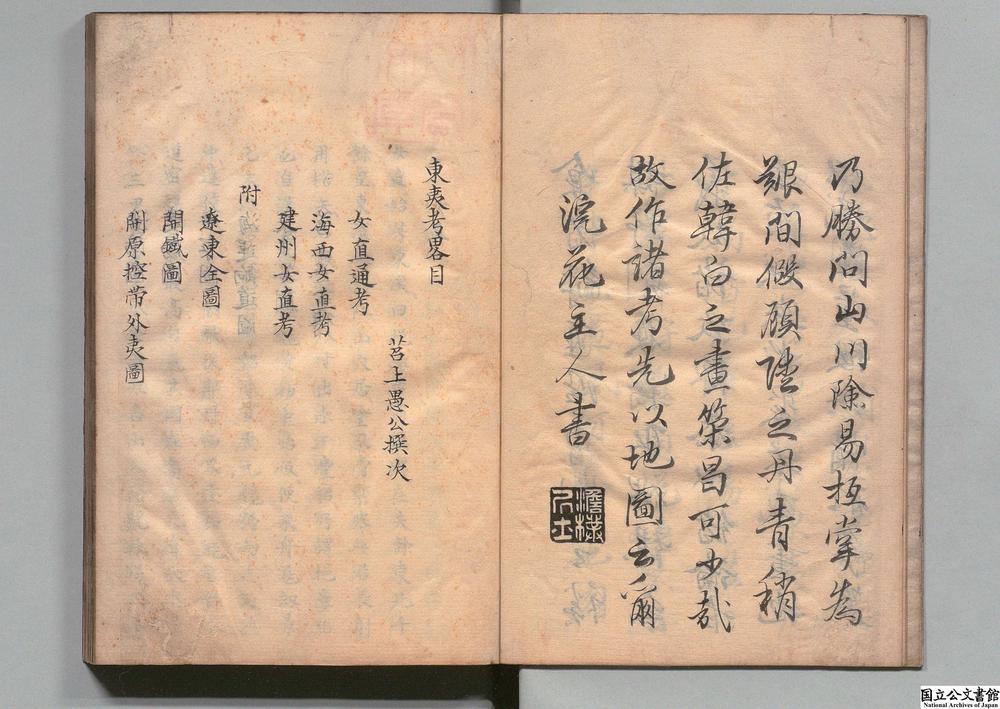 乃勝問山川險易抵掌為
艱間假顧陸之丹青稍
佐韓白之畫策曷可少哉
故作諸考先以地圖云爾
浣花主人書
東夷考畧目
苕上愚公撰次
女直通考
海西女直考
建州女直考
附
遼東全圖
開鐵圖
開原控帶外夷圖
国立公文書館
National Archives of Japan